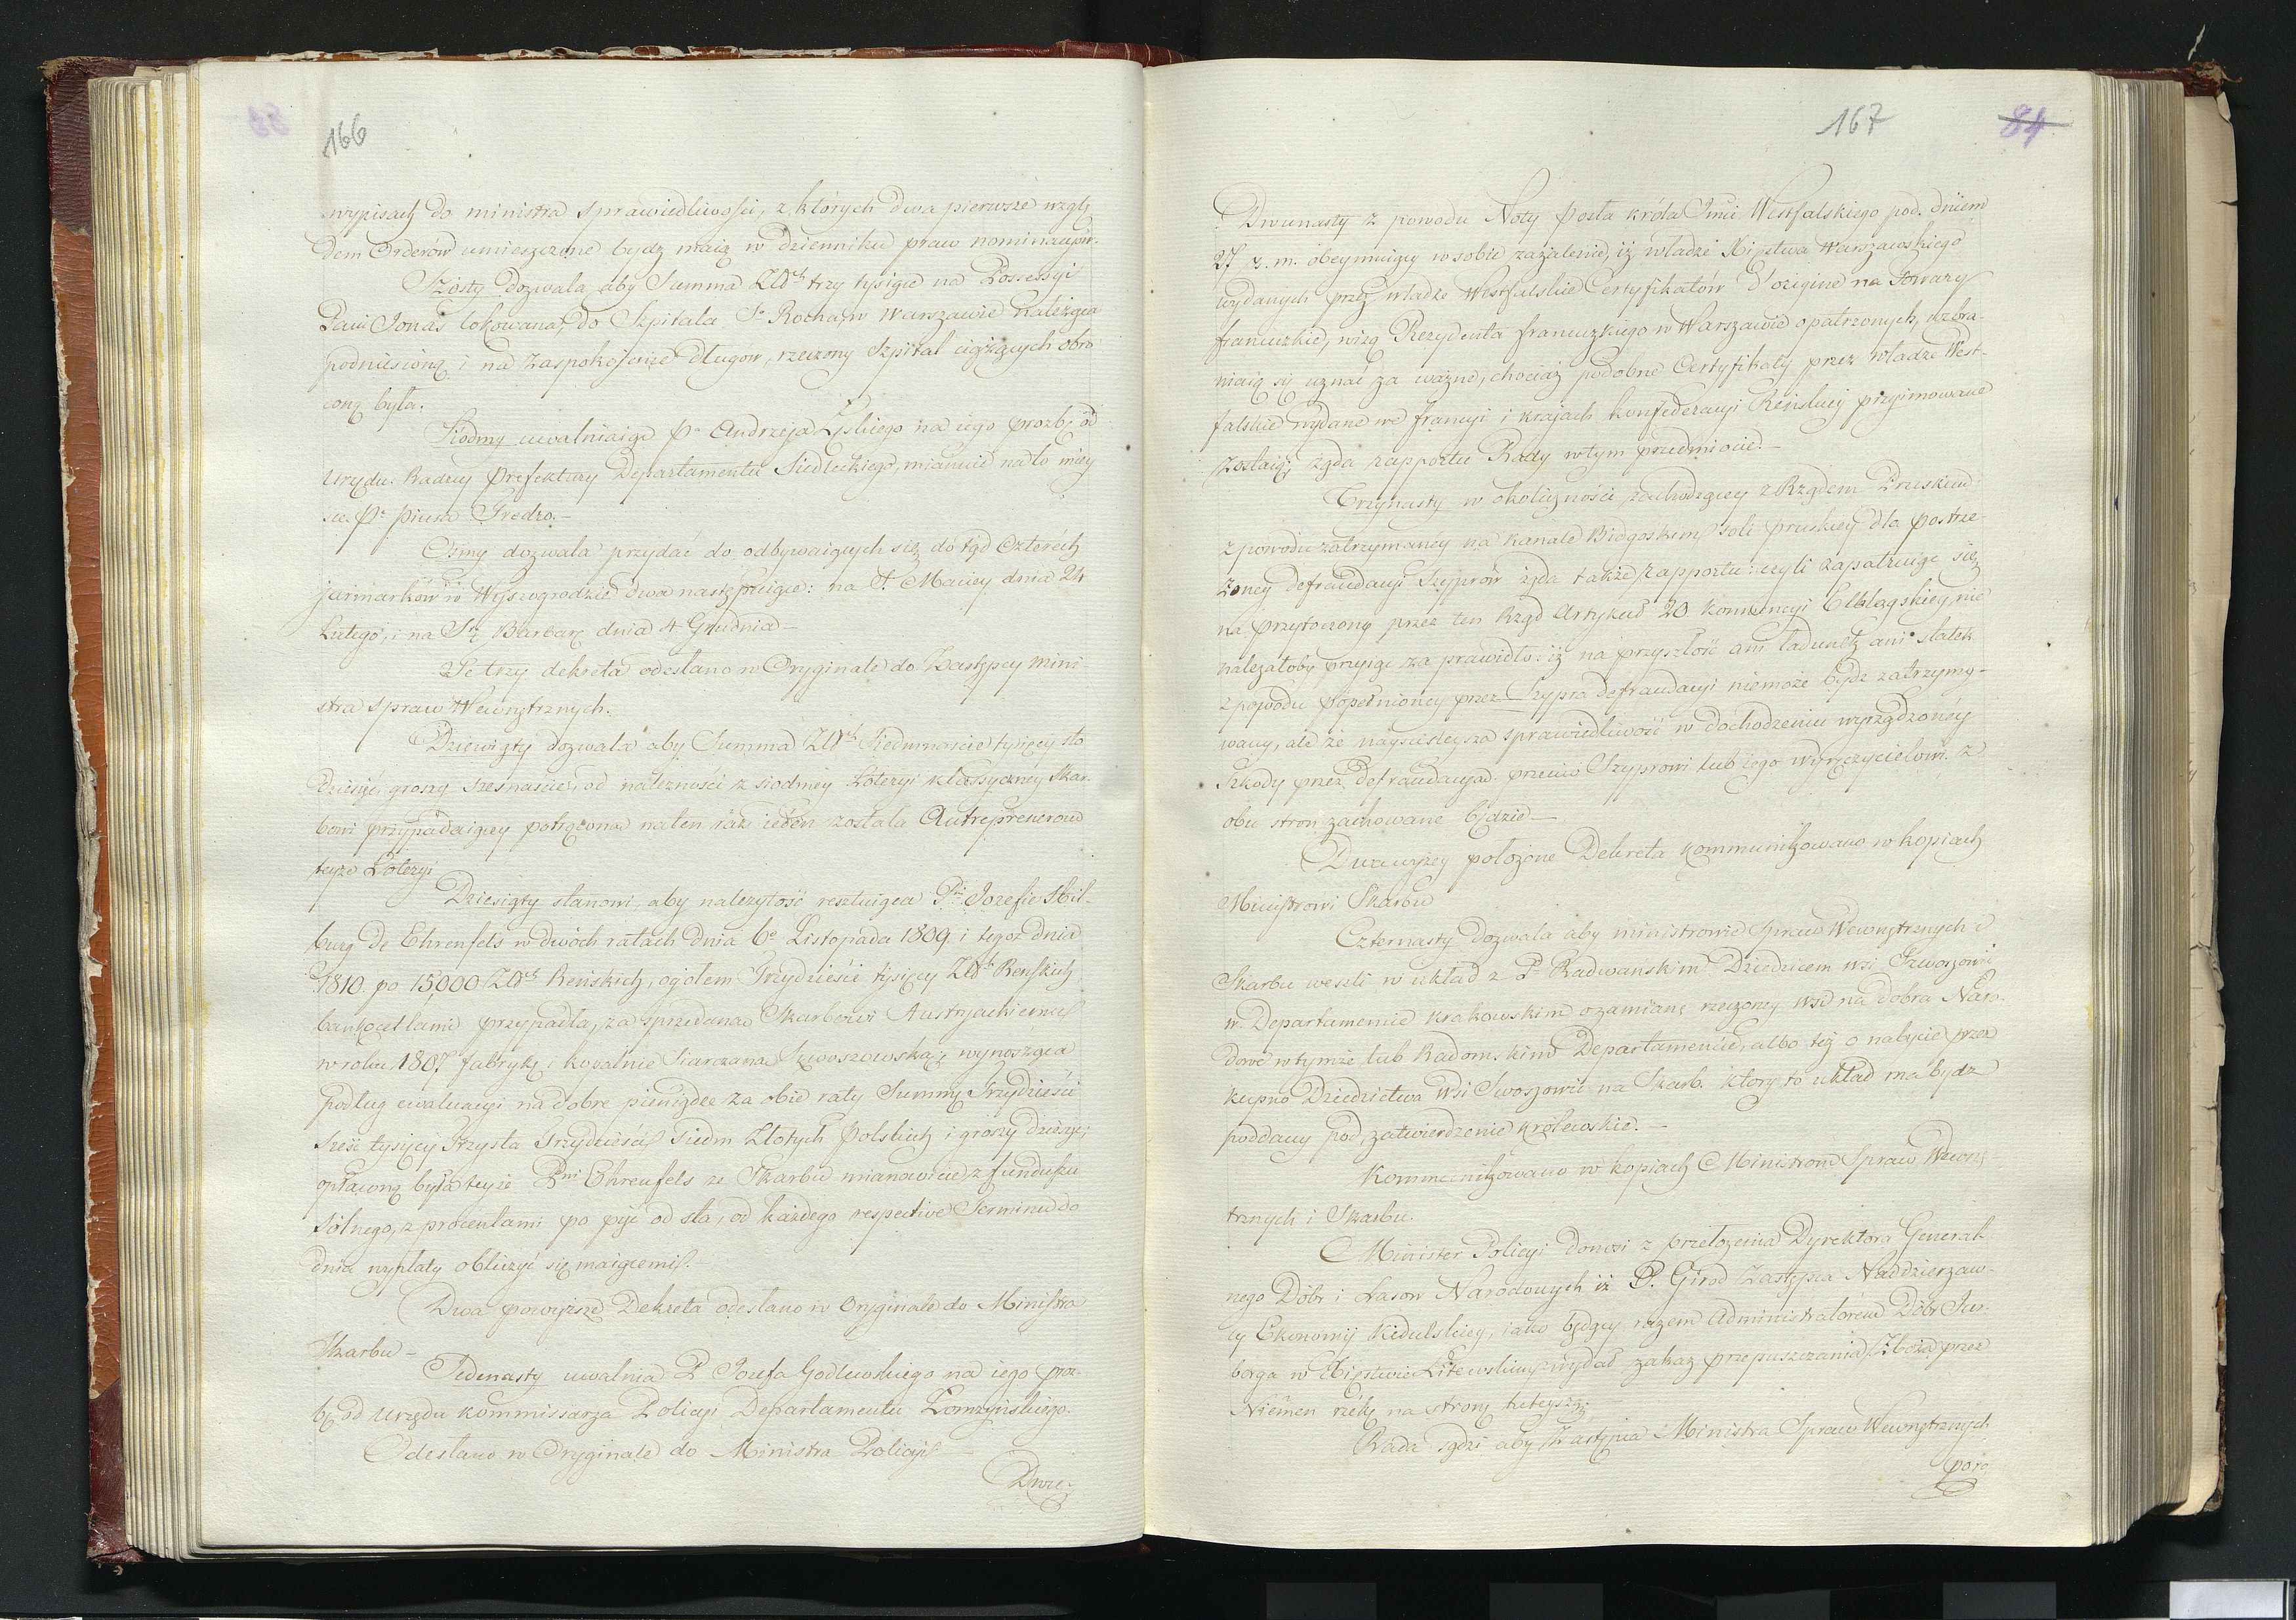 166
wypisach do ministra sprawiedliwości, z których dwa pierwsze wzglę
dem Orderów umieszczone bydz maią w dzienniku praw nominacyi
Szósty dozwala aby Summa Złłch trzy tysiące na Possessyi
Pani Jonas lokowana, do Szpitala So Rocha w Warszawie należąca
podniesioną i na zaspokojenie długow, rzeczony Szpital ciążących obró
coną była.
Siódmy uwalniaiąc Pa Andrzeja Łąskiego na iego prozbę od
Urzędu Radzcy Prefektury Departamentu Siedleckiego, mianuie na to miey
sce Pa Piusa Fredro.—
Osmy dozwala przydać do odbywaiących się dotąd czterech
jarmarków w Wyszogrodzie dwa następuiące: na S. Maciey dnia 24
Lutego, i na Stą Barbarę dnia 4 Grudnia—
Te trzy dekreta odesłano w Oryginale do Zastępcy mini-
stra Spraw Wewnętrznych.
Dziewiąty dozwala aby Summa Złłch Siedmnaście tysięcy sto
dziesięć, groszy szesnaście, od należności z siódmey Loteryi klassyczney Skar-
bowi przypadaiącey potrącona na ten raz ieden została Antreprenerom
teyże Loteryi
Dziesiąty stanowi, aby należytość resztuiąca Pni Jozefie Hil-
burg de Ehrenfels w dwóch ratach dnia 6o Listopada 1809 i tegoż dnia
1810. po 15,000 Złłch Reńskich, ogółem Trzydzieście tysięcy Złłch Reńskich
bankocetlami przypadła, za sprzedana Skarbowi Austryackiemu
w roku 1807 fabrykę i kopalnie Siarczana Szwoszowską, wynosząca
podług ewaluacyi na dobre pieniądze za obie raty Summę Trzydzieści
sześć tysięcy Trzysta Trzydzieści siedm Złotych Polskich i groszy dziesięć,
opłaconą była teyże Pni Ehrenfels ze Skarbu mianowicie z funduszu
solnego, z procentami po pięć od sta, od każdego respective Terminu do
dnia wypłaty obliczyć się maiącemi.—
Dwa powyższe Dekreta odesłano w Oryginale do Ministra
Skarbu—
Jedenasty uwalnia P Jozefa Godlewskiego na iego proz-
bę od Urzędu Kommissarza Policyi Departamentu Łomżyńskiego.
Odesłano w Oryginale do Ministra Policyi—
Dwu-
167
84
Dwunasty z powodu Noty Posła króla Jmci Westfalskiego pod. dniem
27 z. m. obeymuiącey w sobie zażalenie, iż władze Xięstwa Warszawskiego
wydanych przez władze Westfalskie Certyfikatów d'origine na Towary
francuzkie, wizą Rezydenta francuzkiego w Warszawie opatrzonych, wzbra-
niaią się uznać za ważne, chociaż podobne Certyfikaty przez władze West-
falskie wydane we francyi i krajach konfederacyi Reńskiey przyimowane
zostaią; żąda rapportu Rady w tym przedmiocie.—
Trzynasty w okoliczności zachodzącey z Rządem Pruskim
z powodu zatrzymaney na kanale Bidgoskim soli pruskiey dla postrze-
żoney defraudacyi Szyprów żąda także rapportu: czyli zapatruiąc się
na przytoczony przez ten Rząd Artykuł 20 Konwencyi Elblągskiey, nie
należałoby przyiąć za prawidło: iż na przyszłość ani ładunek ani statek
z powodu popełnioney przez Szypra defraudacyi niemoże bydz zatrzymy-
wany, ale że nayściśleysza sprawiedliwość w dochodzeniu wyrządzoney
szkody przez defraudacya przeciw Szyprowi lub iego wyręczycielowi z
obu stron zachowane będzie—
Dwa wyżey położone Dekreta kommunikowano w kopiach
Ministrowi Skarbu
Czternasty dozwala aby ministrowie Spraw Wewnętrznych i
Skarbu weszli w układ z Pm Radwańskim Dziedzicem wsi Szwoszowic
w Departamencie krakowskim o zamianę rzeczoney wsi na dobra Naro-
dowe w tymże lub Radomskim Departamencie, albo też o nabycie przez
kupno Dziedzictwa wsi Swoszowic na Skarb. który to układ ma bydz
poddany pod zatwierdzenie królewskie.—
Kommunikowano w kopiach Ministrom Spraw Wewnę-
trznych i Skarbu.
Minister Policyi donosi z przełożenia Dyrektora General-
nego Dóbr i Lasow Narodowych iż P. Girod Zastępca Naddzierżaw-
cy Ekonomij Kidulskiey, iako będący razem Administratorem Dóbr Jur-
borga w Xięstwie Litewskim, wydał zakaz przepuszczania Zboża przez
Niemen rzekę na stronę tuteyszą;
Rada sądzi aby Zastępca Ministra Spraw Wewnętrznych
poro